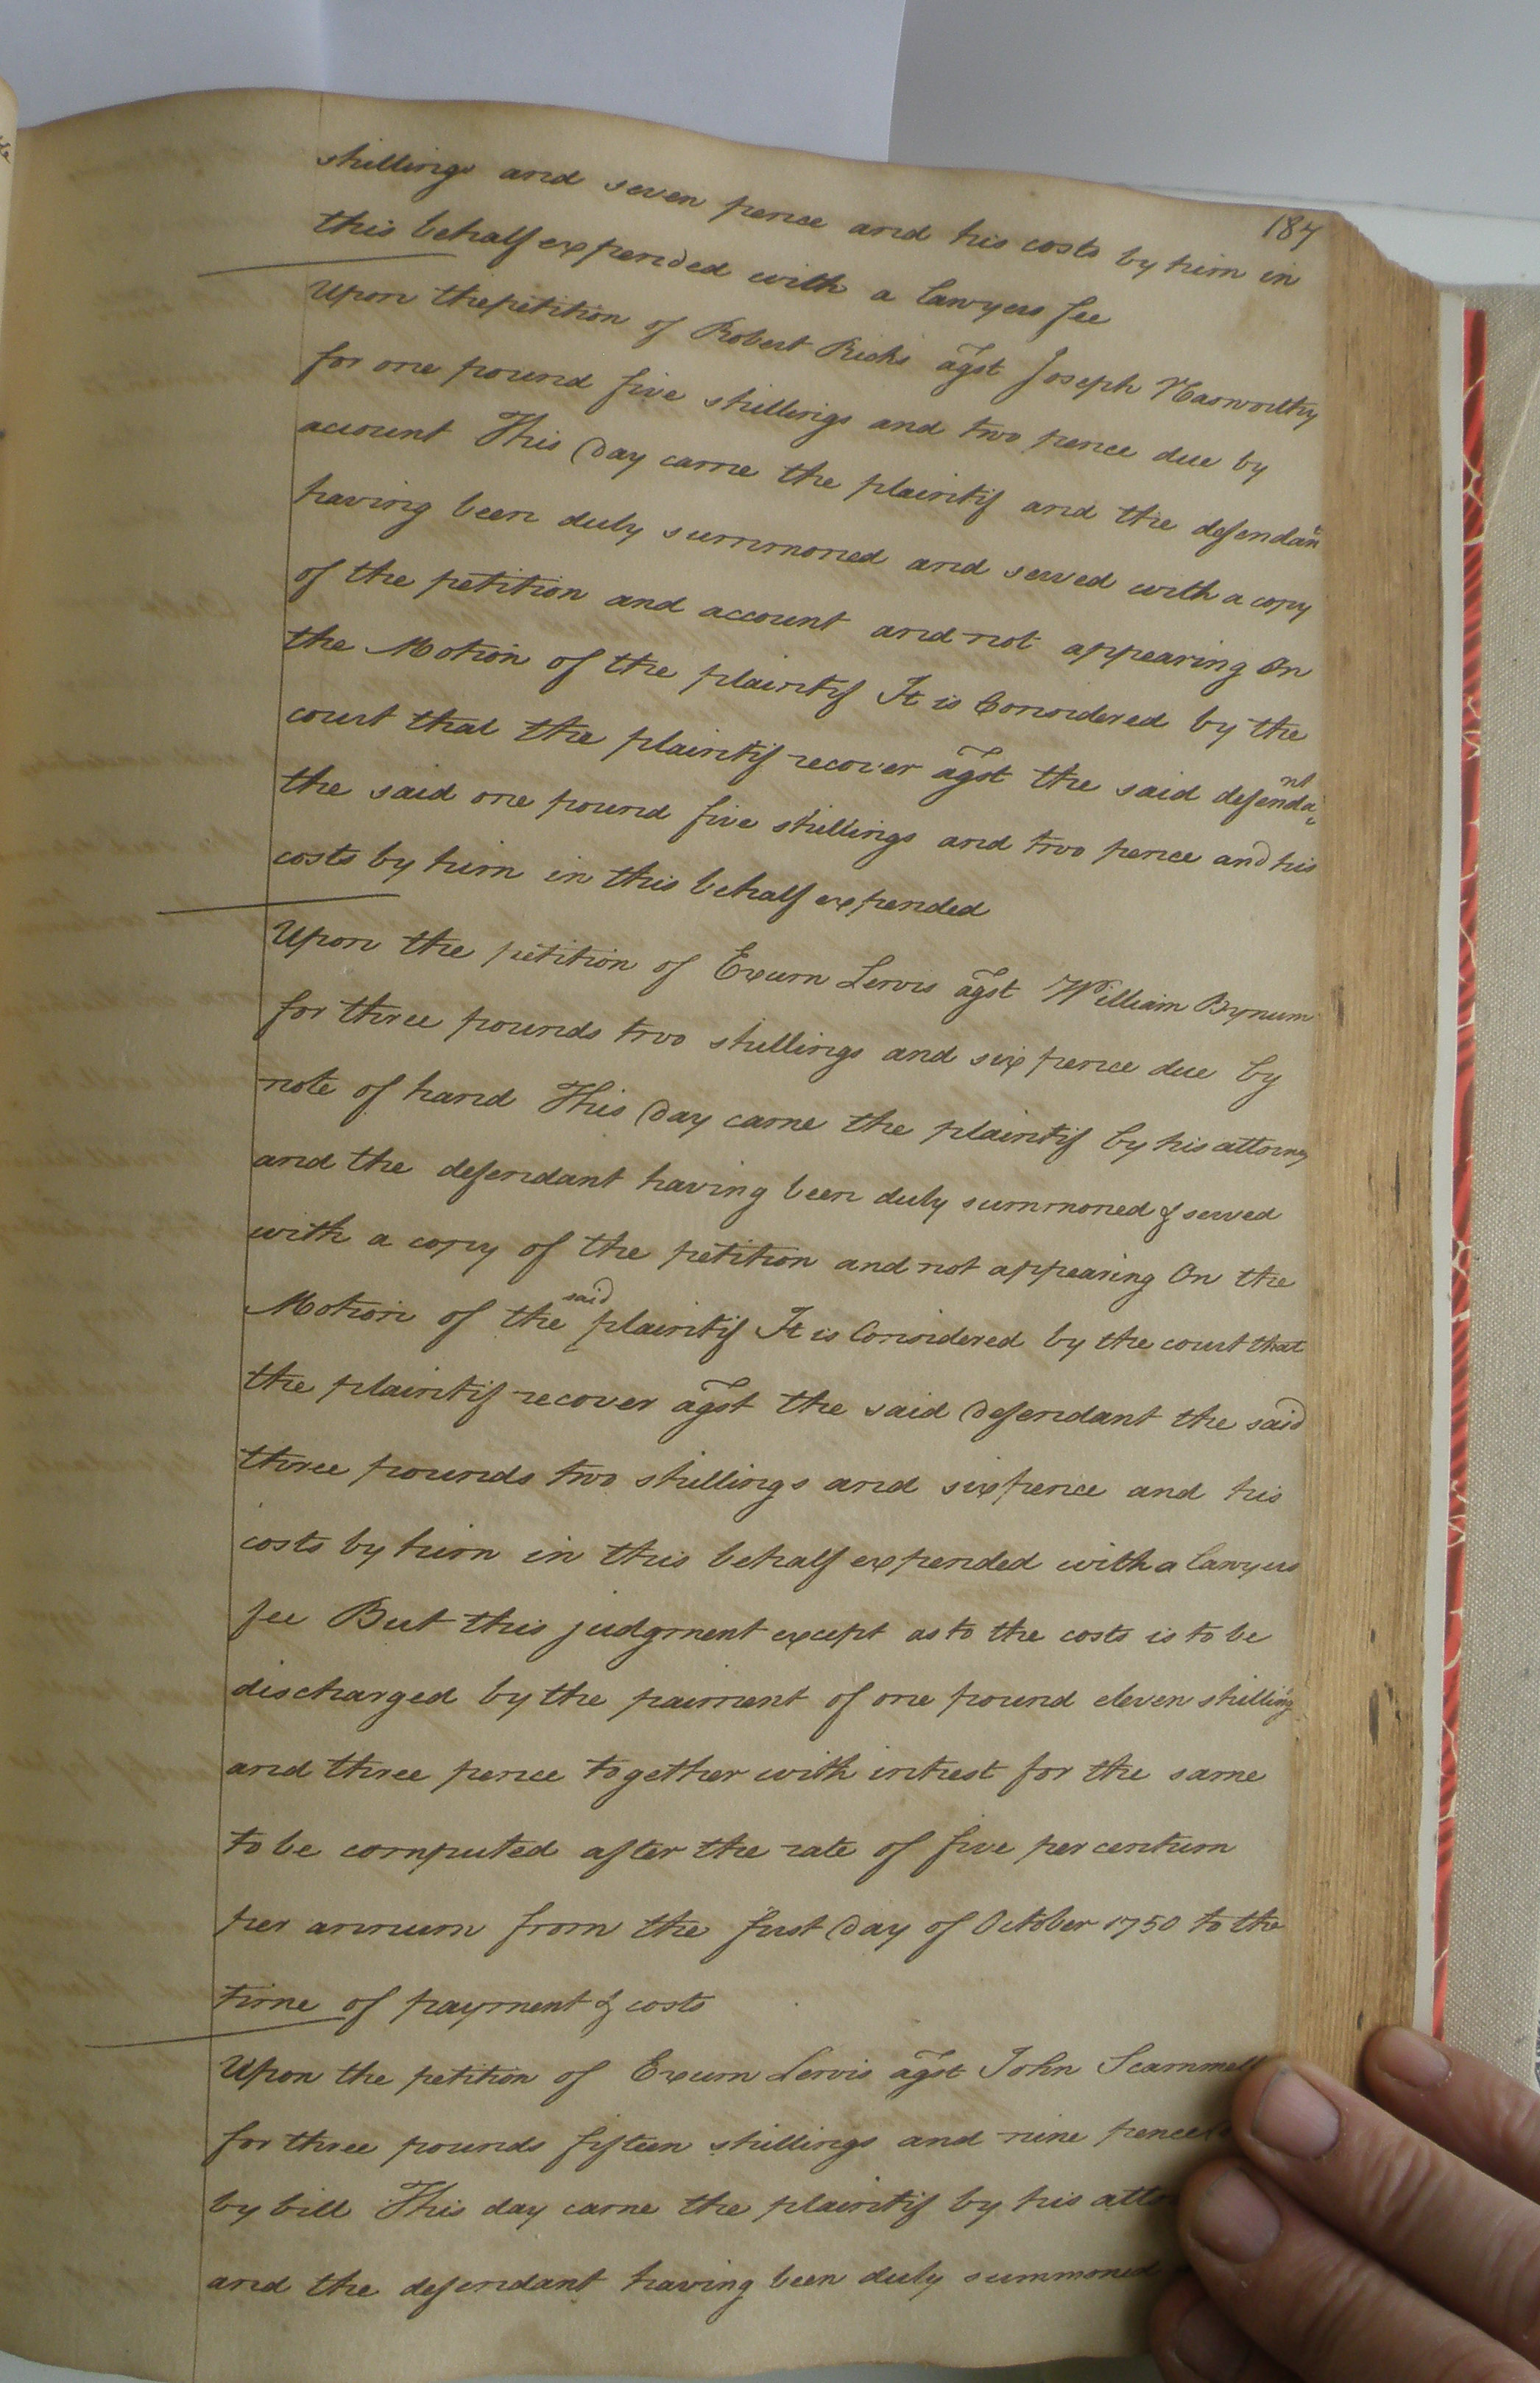 184
shillings and seven pence and his costs by him in
this behalf expended with a lawyers fee
Upon the petition of Robert Ricks agst Joseph Harworthy
for one pound five shillings and two pence due by
account This Day came the plaintif and the defendan
having been duly summoned and served with a copy
of the petition and account and not appearing On
the Motion of the plaintif It is Considered by the
court that the plaintif recover agst the said defendant
the said one pound five shillings and two pence and his
costs by him in this behalf expended
Upon the petition of Exum Lewis agst William Bynum
for three pounds two shillings and six pence due by
note of hand This Day came the plaintif by his attorney
and the defendant having been duly summoned & served
with a copy of the petition and not appearing On the
Motion of the said plaintif It is Considered by the court that
the plaintif recover agst the said Defendant the said
three pounds two shillings and sixpence and his
costs by him in this behalf expended with a lawyers
fee But this judgment except as to the costs is to be
discharged by the paiment of one pound eleven shilling
and three pence together with intrest for the same
to be computed after the rate of five per centum
per annum from the first Day of October 1750 to the
time of payment & costs
Upon the petition of Exum Lewis agst John Scammell
for three pounds fifteen shillings and nine pence
by bill This day came the plaintif by his
and the defendant having been duly summoned